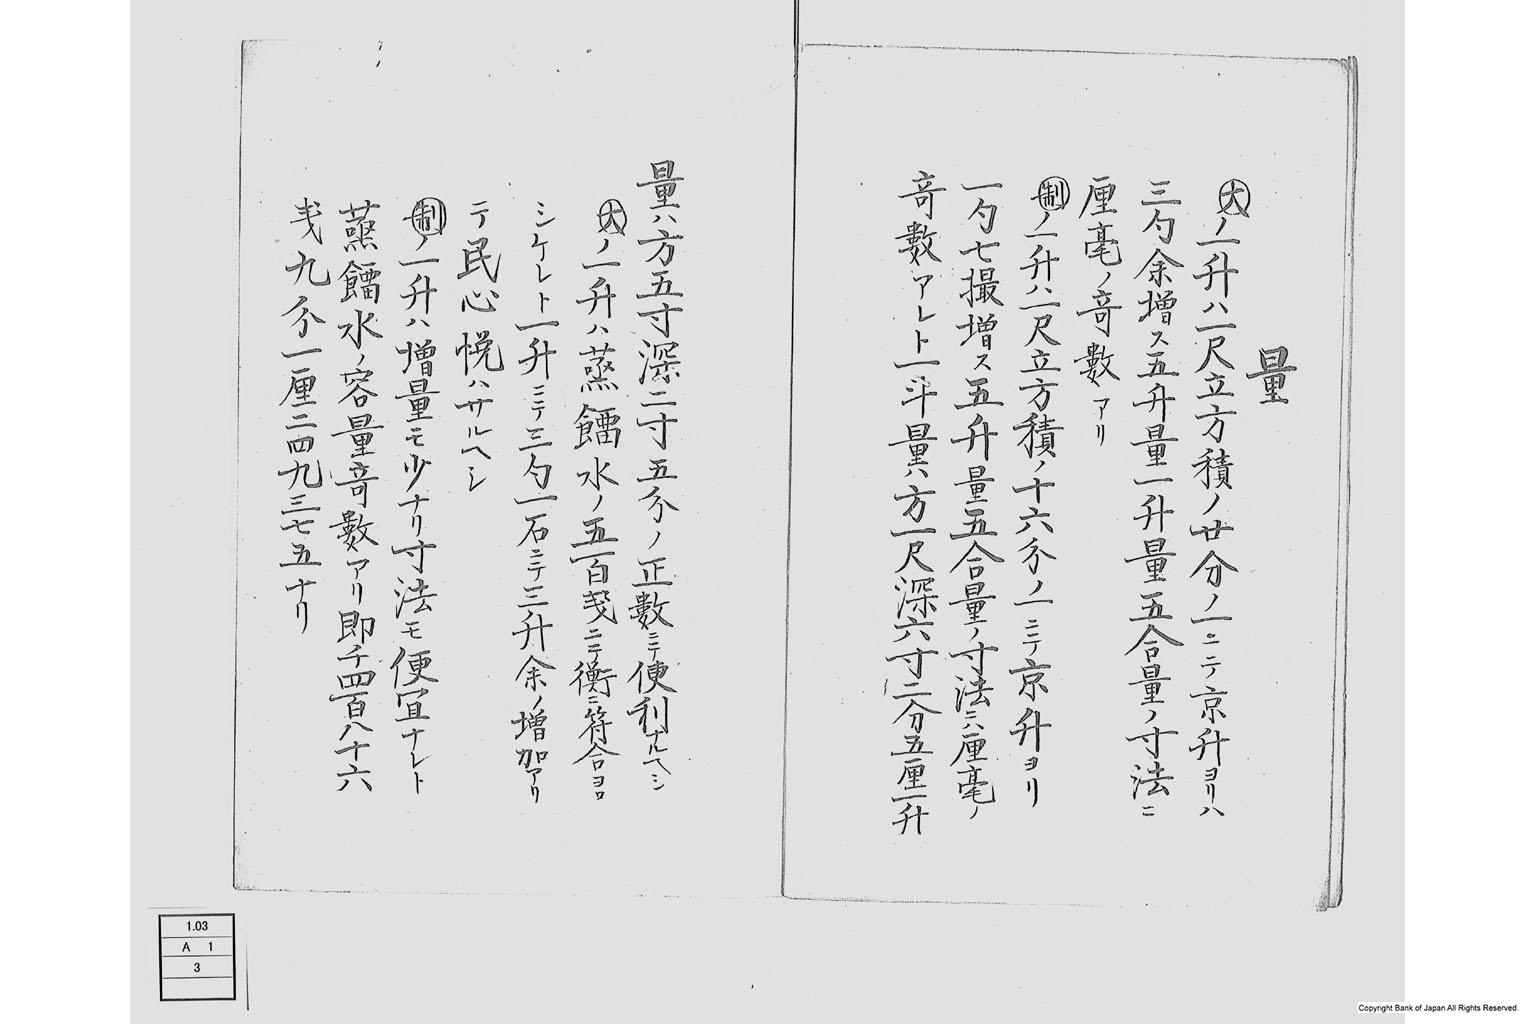 量
大ノ一升ハ一尺立方積ノ廿分ノ一ニテ京升ヨリハ
三勺余増ス五升量一升量五合量ノ寸法ニ
厘毫ノ竒數アリ
制ノ一升ハ一尺立方積ノ十六分ノ一ニテ京升ヨリ
一勺七撮増ス五升量五合量ノ寸法ニハ厘毫ノ
竒數アレト一斗量ハ方一尺深六寸二分五厘一升
量ハ方五寸深二寸五分ノ正數ニテ便利ナルヘシ
大ノ一升ハ蒸餾水ノ五百戔ニテ衡ニ符合ヨロ
シケレト一升ニテ三勺一石ニテ三升余ノ増加アリ
テ民心悦ハサルヘシ
制ノ一升ハ増量モ少ナリ寸法モ便宜ナレト
蒸餾水ノ容量竒數アリ即千四百八十六
戔九分一厘二四九三七五ナリ
1.03
A 1
3
Copyright Bank of Japan All Rights Reserved.